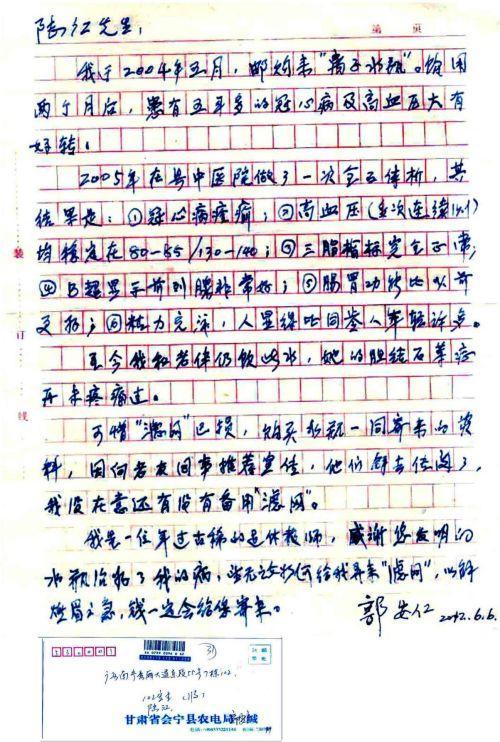 第 页
陶江先生：
我于2004年五月，邮购来"离子水瓶"。饮用
两个月后，患有五年多的冠心病及高血压大有
好转。
2005年在县中医院做了一次全面体析，其
结果是：①冠心病痊愈；②高血压（多次连续
均稳定在80-85/130-140；③三脂指标完全正常；
④B超显示前列腺非常好；⑤肠胃功能比以前
更好；⑥精力充沛，人显得比同龄人年轻许多。
至今我和老伴仍饮此水，她的胆结石等症
再未疼痛过。
可惜"滤网"已损，购买水瓶一同寄来的资
料，因向老友同事推荐宣传，他们都去传阅了，
我没在意还有没有备用"滤网"。
我是一位年过古稀的退休教师，感谢您发明的
水瓶治好了我的病，给我寄来"滤网"，以解
燃眉之急，钱一定会给您寄来。
郭安仁 2012.6.6.
装
订
线
甘肃省会宁县农电局